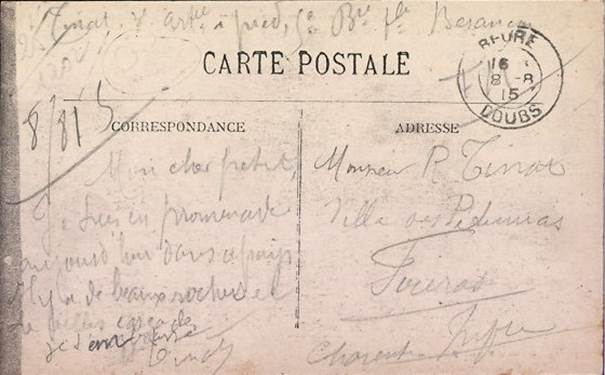 Tinat, artie à pied, 5e Bie Besançon
CARTE POSTALE
BEURE
16
8-8
15
DOUBS
8/8/15
CORRESPONDANCE
ADRESSE
Mon cher petit,
Je suis en promenade
aujourd'hui dans ce pays
il y a de beaux rochers et
de belles cascades
Monsieur R Tinat
Villa des
Fouras
Charente Infre